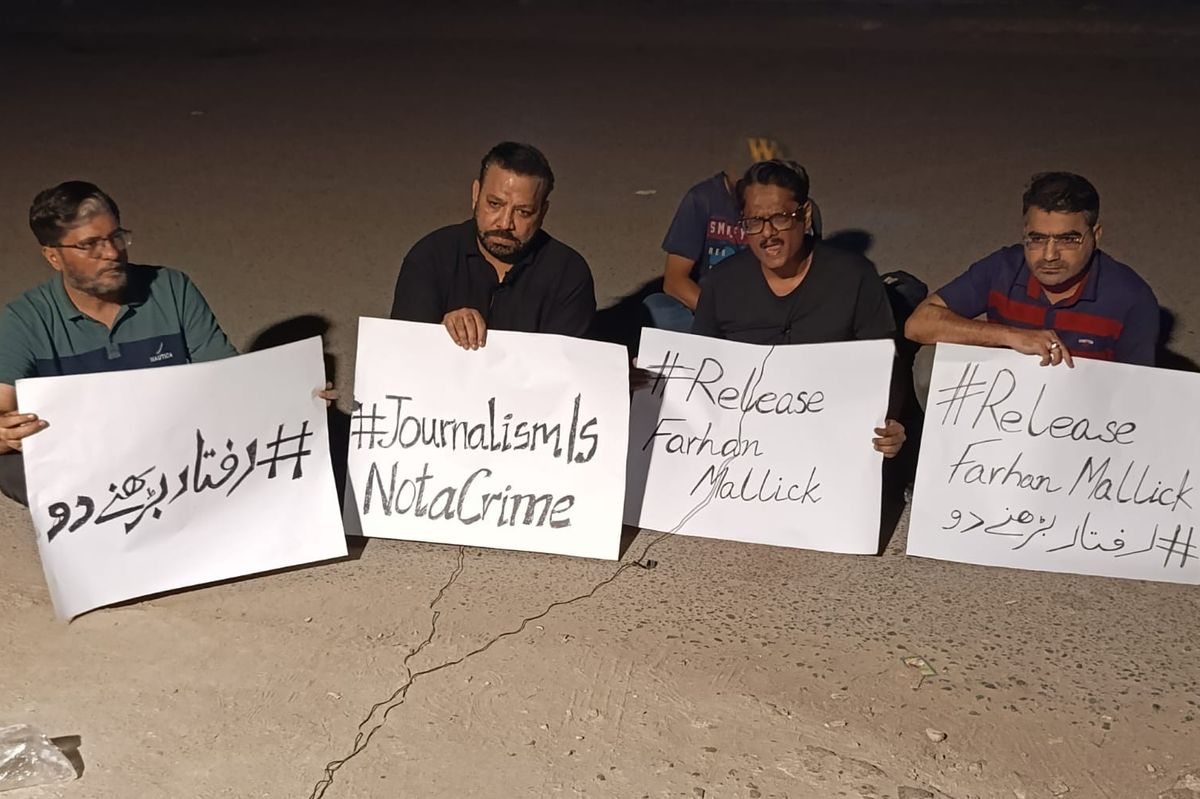 #رفتار بڑھنے دو
#JournalismIs
NotaCrime
#Release
Farhan
Mallick
#Release
Farhan Mallick
#رفتار بڑھنے دو
NAUTICA
W